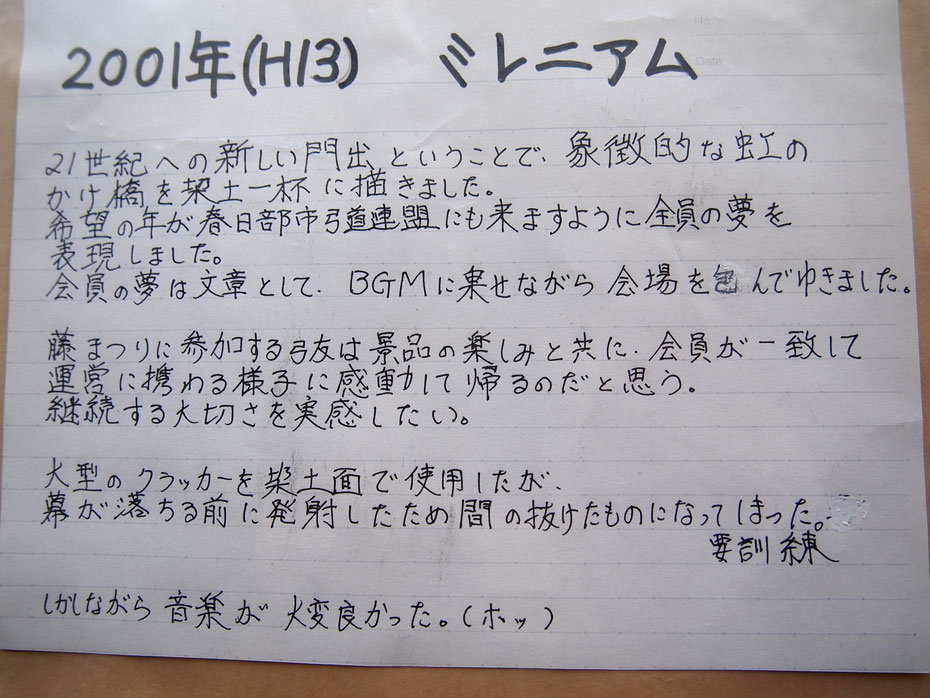 No.
Date
2001年(H13) ミレニアム
21世紀への新しい門出ということで、象徴的な虹の
かけ橋を垜土一杯に描きました。
希望の年が春日部市弓道連盟にも来ますように全員の夢を
表現しました。
会員の夢は文章として、BGMに乗せながら会場を包んでゆきました。
藤まつりに参加する弓友は景品の楽しみと共に、会員が一致して
運営に携わる様子に感動して帰るのだと思う。
継続する大切さを実感したい。
大型のクラッカーを垜土面で使用したが、
幕が落ちる前に発射したため間の抜けたものになってしまった。
要訓練
しかしながら音楽が大変良かった。(ホッ)